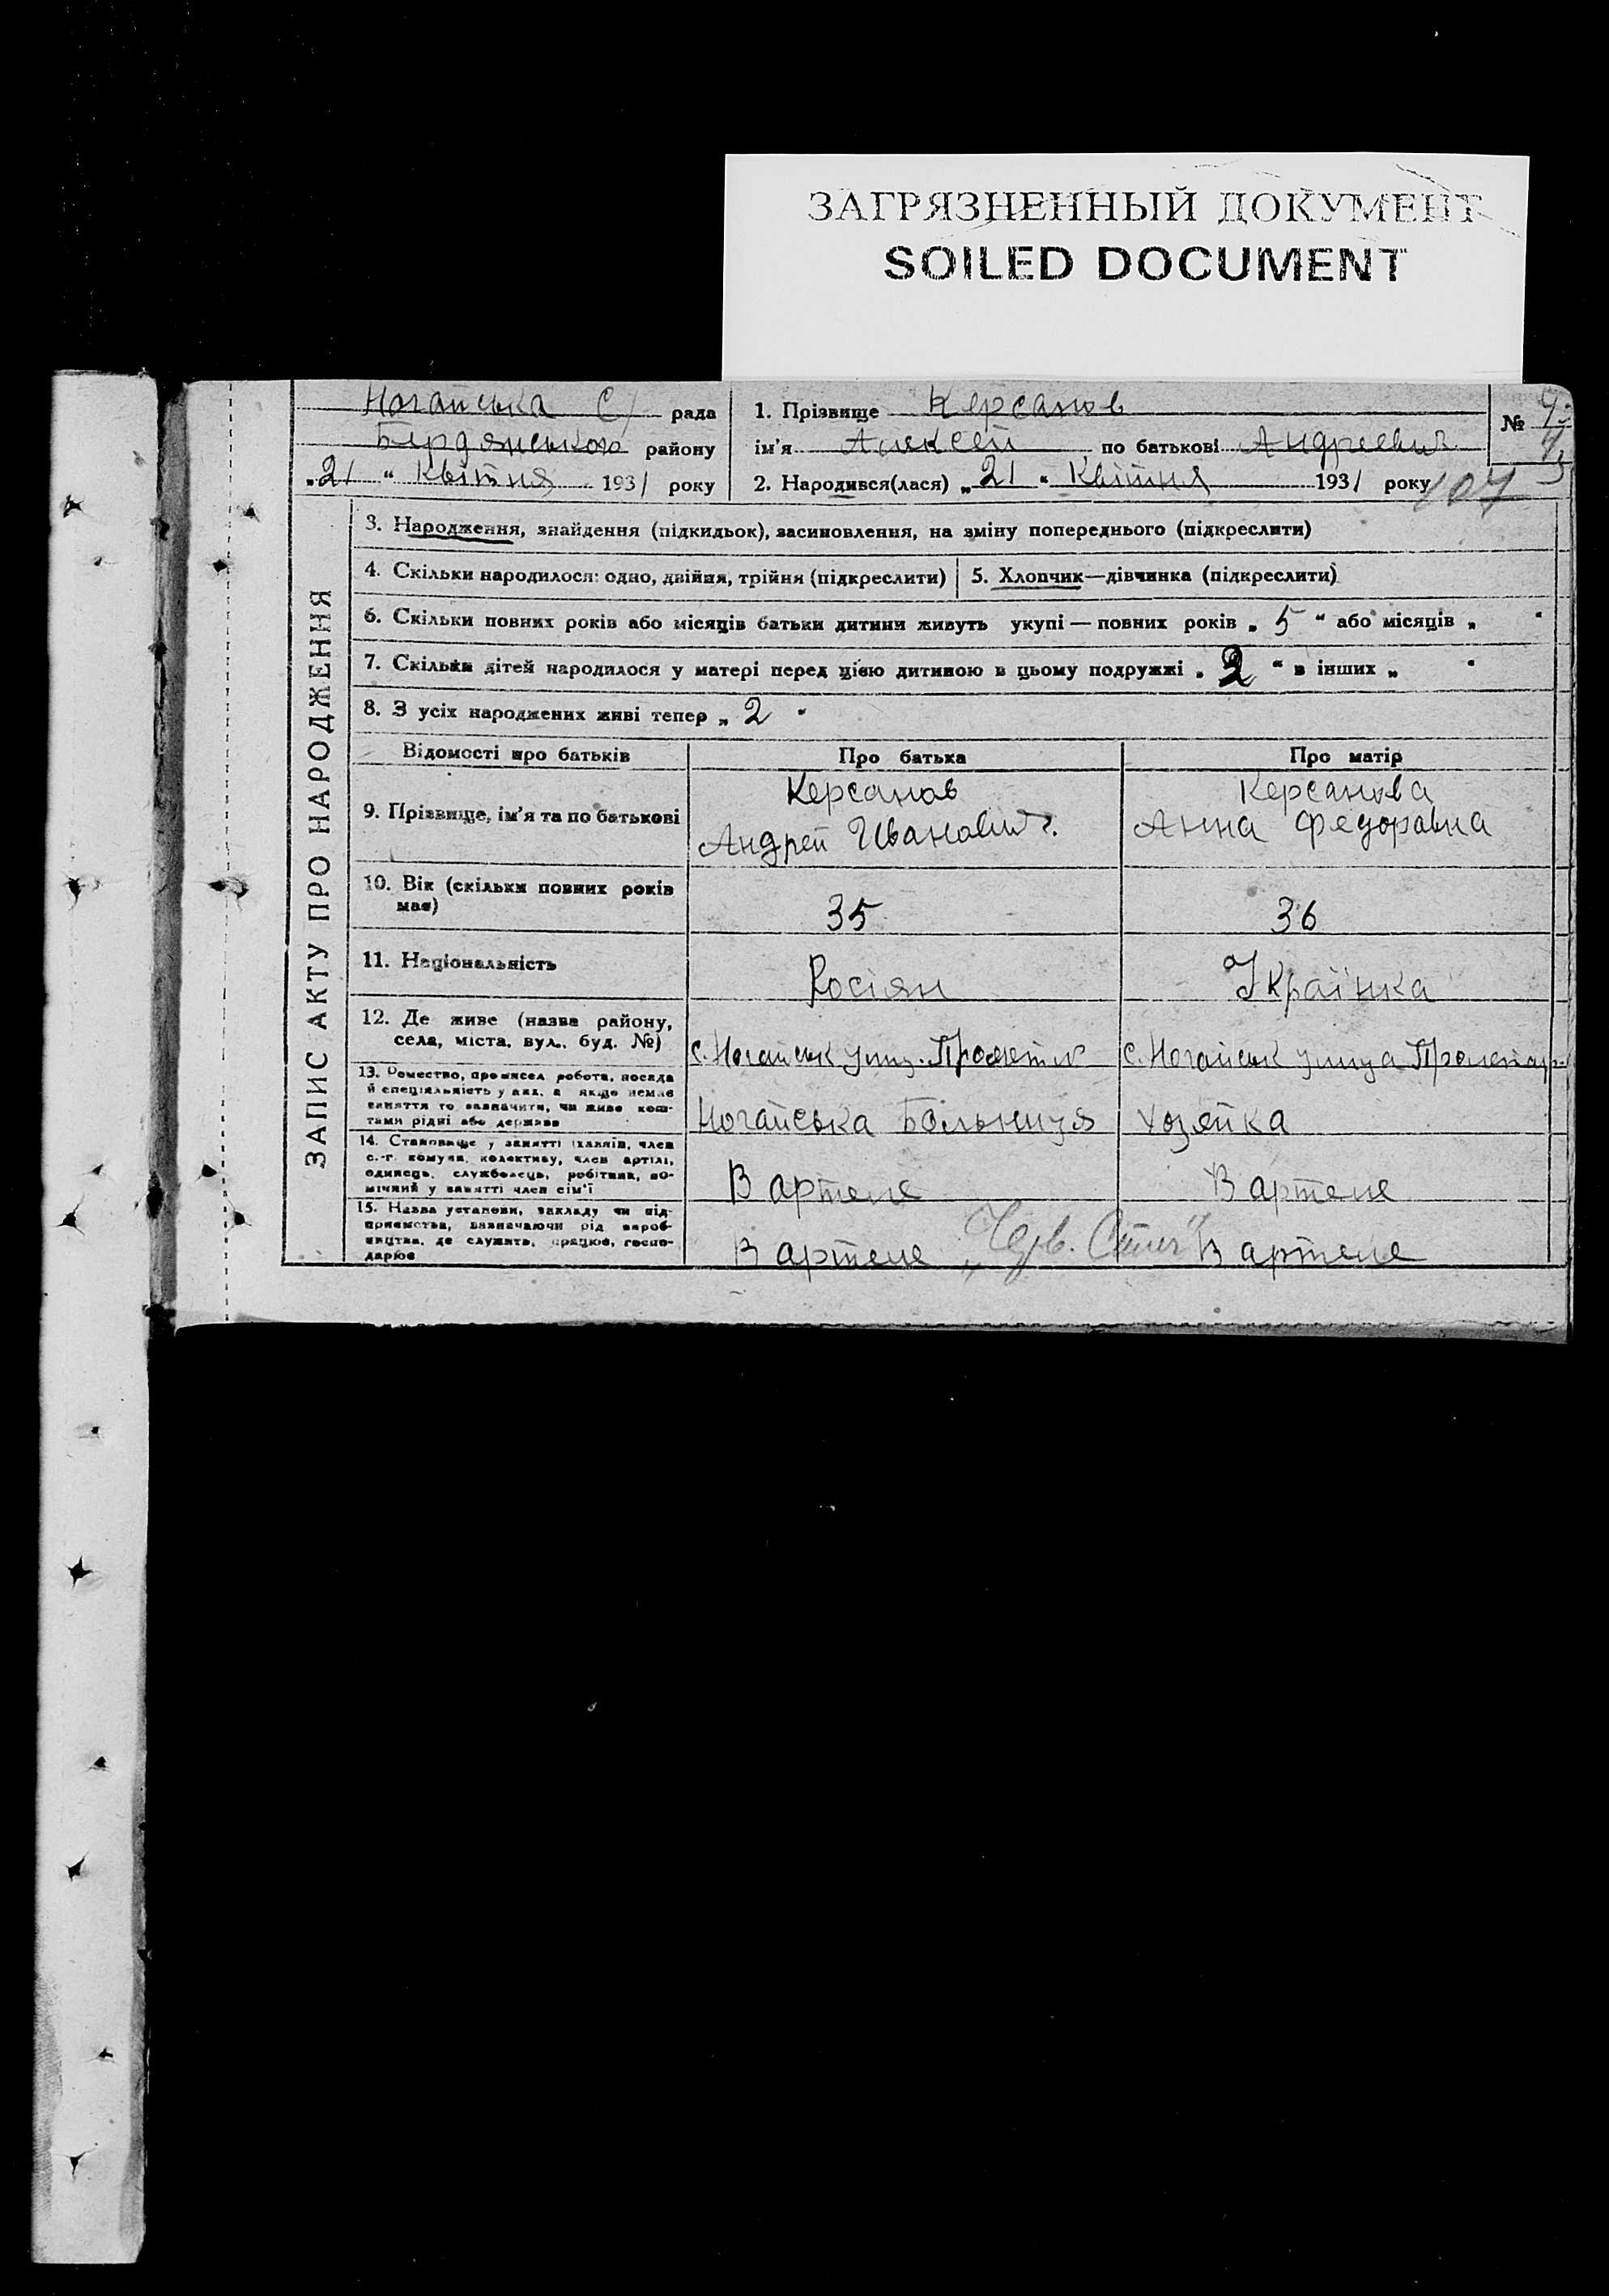 ЗАГРЯЗНЕННЫЙ ДОКУМЕНТ
SOILED DOCUMENT
Ногайська С/ рада
Бердянського району
„21 “ Квітня 1931 року
1. Прізвище Керсанов
ім’я Алексей по батькові Андреевич
2. Народився(лася) „21 “ Квітня 1931 року
№
107
ЗАПИС АКТУ ПРО НАРОДЖЕННЯ
3. Народження, знайдення (підкидьок), засиновлення, на зміну попереднього (підкреслити)
4. Скільки народилося: одно, двійня, трійня (підкреслити) 5. Хлопчик—дівчинка (підкреслити)
6. Скільки повних років або місяців батьки дитини живуть укупі — повних років „ 5 “ або місяців „ “
7. Скільки дітей народилося у матері перед цією дитиною в цьому подружжі „ 2 “ в інших „ “
8. З усіх народжених живі тепер „ 2 “
Відомості про батьків Про батька Про матір
9. Прізвище, ім’я та по батькові
Керсанов
Андрей Иванович.
Керсанова
Анна Федоравна
10. Вік (скільки повних років
має)
35 36
11. Національність Росіян Українка
12. Де живе (назва району,
села, міста, вул., буд. №)
с. Ногайськ улиц. с. Ногайськ улица Пролетар.
13. Ремество, промисел робота, посада
й спеціяльність у них, а якщо немає
заняття то зазначити, чи живе кош-
тами рідні або держави
Ногайська Больниця Хозяйка
14. Становище у занятті (хазяїн, член
с.-г. комуни, колективу, член артілі,
одинець, службовець, робітник, по-
мічний у занятті член сім’ї
В артеле В артеле
15. Назва установи, закладу чи під-
приємства, зазначаючи рід вироб-
ництва, де служить, працює, госпо-
дарює
В артеле В артеле